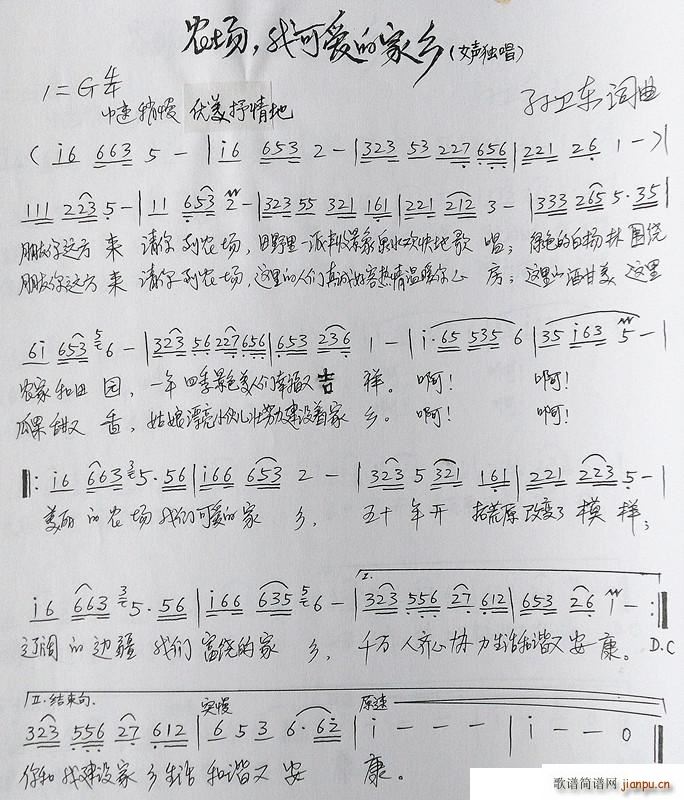 农场，我可爱的家乡(女声独唱)
1=G 4/4
中速稍慢 优美抒情地
孙卫东词曲
( i6 663 5 - | i6 653 2 - | 323 53 227 656 | 221 26 1 - ) |
111 223 5 - | 11 653 2 - | 323 55 321 161 | 221 212 3 - | 333 265 5·35 |
朋友你远方 来 请你到农场，田野里一派丰收景象泉水欢快地歌 唱；绿色的白杨林围绕
朋友你远方 来 请你到农场，这里的人们真诚好客热情温暖你心 房；这里的酒甘美 这里
6i 653 5 6 - | 323 56 227 656 | 653 236 1 - | i·65 535 6 | 35 i63 5 - |
农家和田 园，一年四季景色美人们幸福又吉 祥。 啊！ 啊！
瓜果甜又 香，姑娘漂亮小伙儿壮努力建设着家 乡。 啊！ 啊！
‖: i6 663 3 5·56 | i66 653 2 - | 323 5 321 161 | 221 223 5 - |
美丽的农场我们可爱的家 乡， 五十年开 拓荒原改变了模样；
i6 663 3 5·56 | i66 635 5 6 - | I. 323 556 27 612 | 653 26 i - :‖
辽阔的边疆 我们富饶的家 乡， 千万人齐心协力生活和谐又安康。 D.C
II.结束句. 突慢 原速
323 556 27 612 | 6 5 3 6·62 | i - - - | i - - 0 ‖
你和我建设家乡生活 和谐又安 康。
歌谱简谱网
jianpu.cn